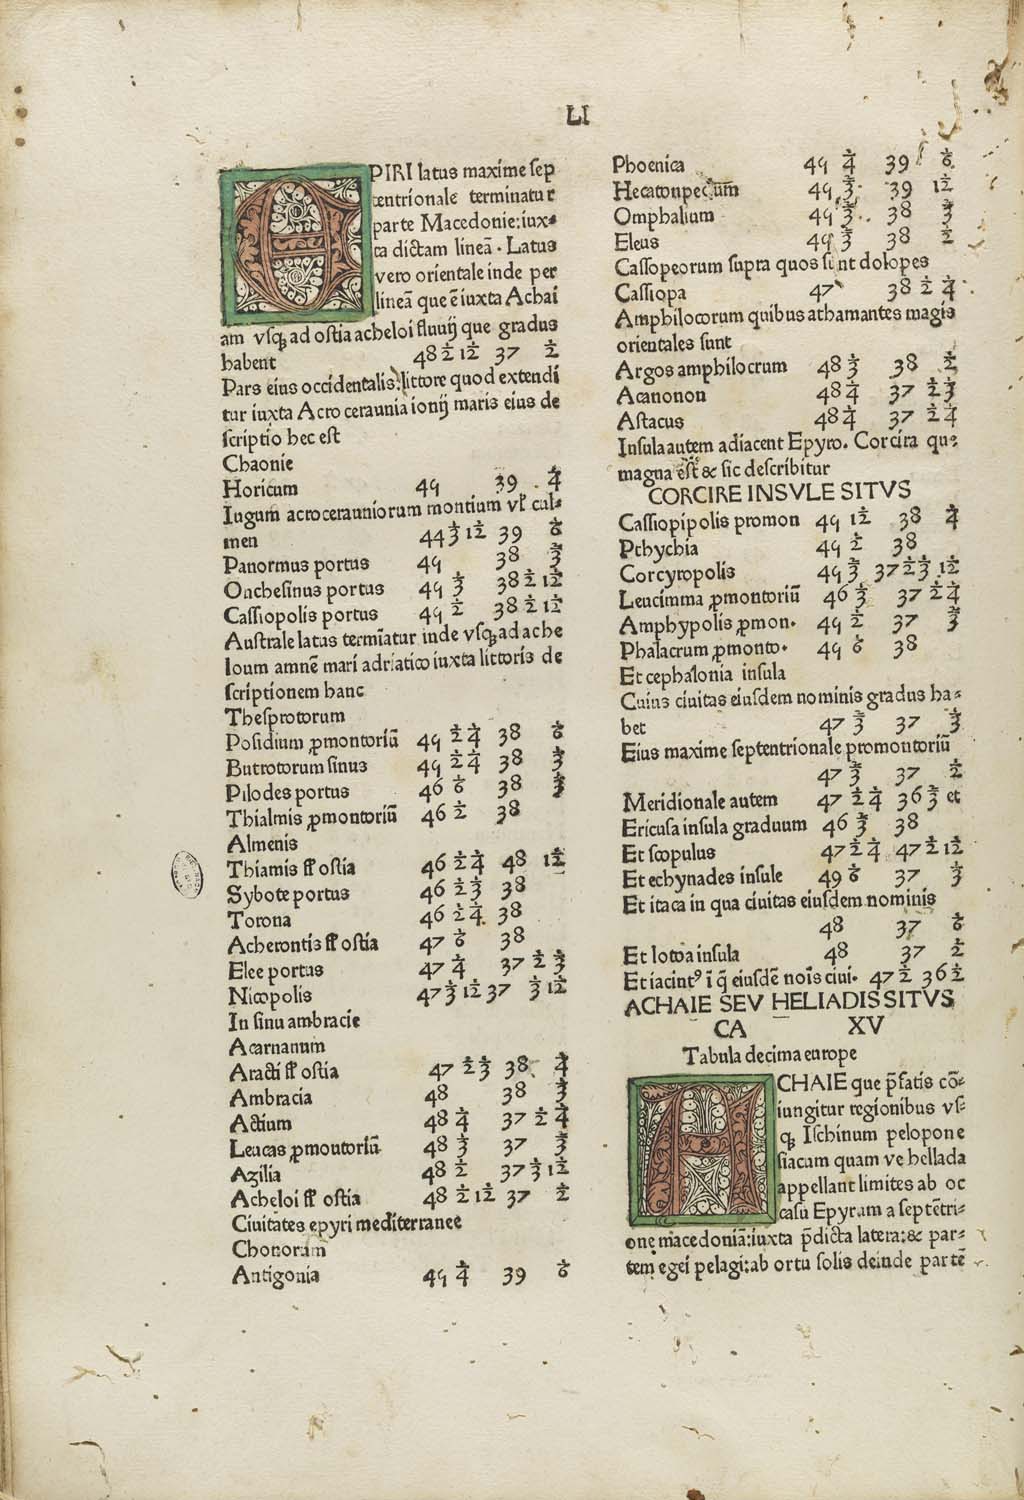 LI
EPIRI latus maxime sep
tentrionale terminatur
parte Macedonie: iux⸗
ta dictam lineā. Latus
vero orientale inde per
lineā que ē iuxta Achai
am vsq̨ ad ostia acheloi fluuij que gradus
habent 48 ½ 1/12 37 ½
Pars eius occidentalis: littore quod extendi
tur iuxta Acro ceraunia ionij maris eius de
scriptio hec est
Chaonie
Horicum 49 39 ¼
Iugum acrocerauniorum montium vl' cul⸗
men 44 ⅓ 1/12 39 ⅙
Panormus portus 49 38 ⅔
Onchesinus portus 49 ⅓ 38 ½ 1/12
Cassiopolis portus 49 ½ 38 ½ 1/12
Australe latus termīatur inde vsq̨ ad ache
loum amnē mari adriatico iuxta littoris de
scriptionem hanc
Thesprotorum
Posidium ꝓmontoriū 49 ½ ¼ 38 ⅙
Butrotorum sinus 49 ½ ¼ 38 ⅓
Pilodes portus 46 ⅙ 38 ⅓
Thialmis ꝓmontoriū 46 ½ 38
Almenis
Thiamis fl' ostia 46 ½ ¼ 48 1/12
Sybote portus 46 ½ ⅓ 38
Torona 46 ½ ¼ 38
Acherontis fl' ostia 47 ⅙ 38
Elee portus 47 ¼ 37 ½ ⅓
Nicopolis 47 ⅓ 1/12 37 ⅓ 1/12
In sinu ambracie
Acarnanum
Aracti fl' ostia 47 ½ ⅓ 38 ¼
Ambracia 48 38 ⅓
Actium 48 ¼ 37 ½ ¼
Leucas ꝓmoutoriū 48 ⅓ 37 ⅓
Azilia 48 ½ 37 ⅓ 1/12
Acheloi fl' ostia 48 ½ 1/12 37 ½
Ciuitates epyri mediterranee
Chonoram
Antigonia 49 ¼ 39 ⅙
Phoenica 49 ¼ 39 ⅙
Hecatonpedum 49 ⅔ 39 1/12
Omphalium 49 ⅔ 38 ⅔
Eleus 49 ⅔ 38 ½
Cassopeorum supra quos sunt dolopes
Cassiopa 47 38 ½ ¼
Amphilocorum quibus athamantes magis
orientales sunt
Argos amphilocrum 48 ⅓ 38 ½
Acanonon 48 ¼ 37 ½ ⅓
Astacus 48 ¼ 37 ½ ¼
Insula autem adiacent Epyro. Corcira que
magna est & sic describitur
CORCIRE INSVLE SITVS
Cassiopipolis promon 49 1/12 38 ¼
Pthychia 49 ½ 38
Corcyropolis 49 ⅔ 37 ½ ⅓ 1/12
Leucimma ꝓmontoriū 46 ⅓ 37 ½ ¼
Amphypolis ꝓmon. 49 ½ 37 ⅔
Phalacrum ꝓmonto. 49 ⅙ 38
Et cephalonia insula
Cuius ciuitas eiusdem nominis gradus ha⸗
bet 47 ⅔ 37 ⅓
Eius maxime septentrionale promontoriū
47 ⅔ 37 ½
Meridionale autem 47 ½ ¼ 36 ⅔ et
Ericusa insula graduum 46 ⅔ 38
Et scopulus 47 ½ ¼ 47 ½ 1/12
Et echynades insule 49 ⅙ 37 ⅓
Et itaca in qua ciuitas eiusdem nominis
48 37 ⅙
Et lotoa insula 48 37 ½
Et iacintꝰ ī q̄ eiusdē noīs ciui. 47 ½ 36 ½
ACHAIE SEV HELIADIS SITVS
CA XV
Tabula decima europe
ACHAIE que p̄fatis cō⸗
iungitur regionibus vs⸗
q̨ Ischinum pelopone
siacum quam ve hellada
appellant limites ab oc
casū Epyram a septētri⸗
one macedoniā: iuxta p̄dicta latera: & par⸗
tem egei pelagi: ab ortu solis deinde partē